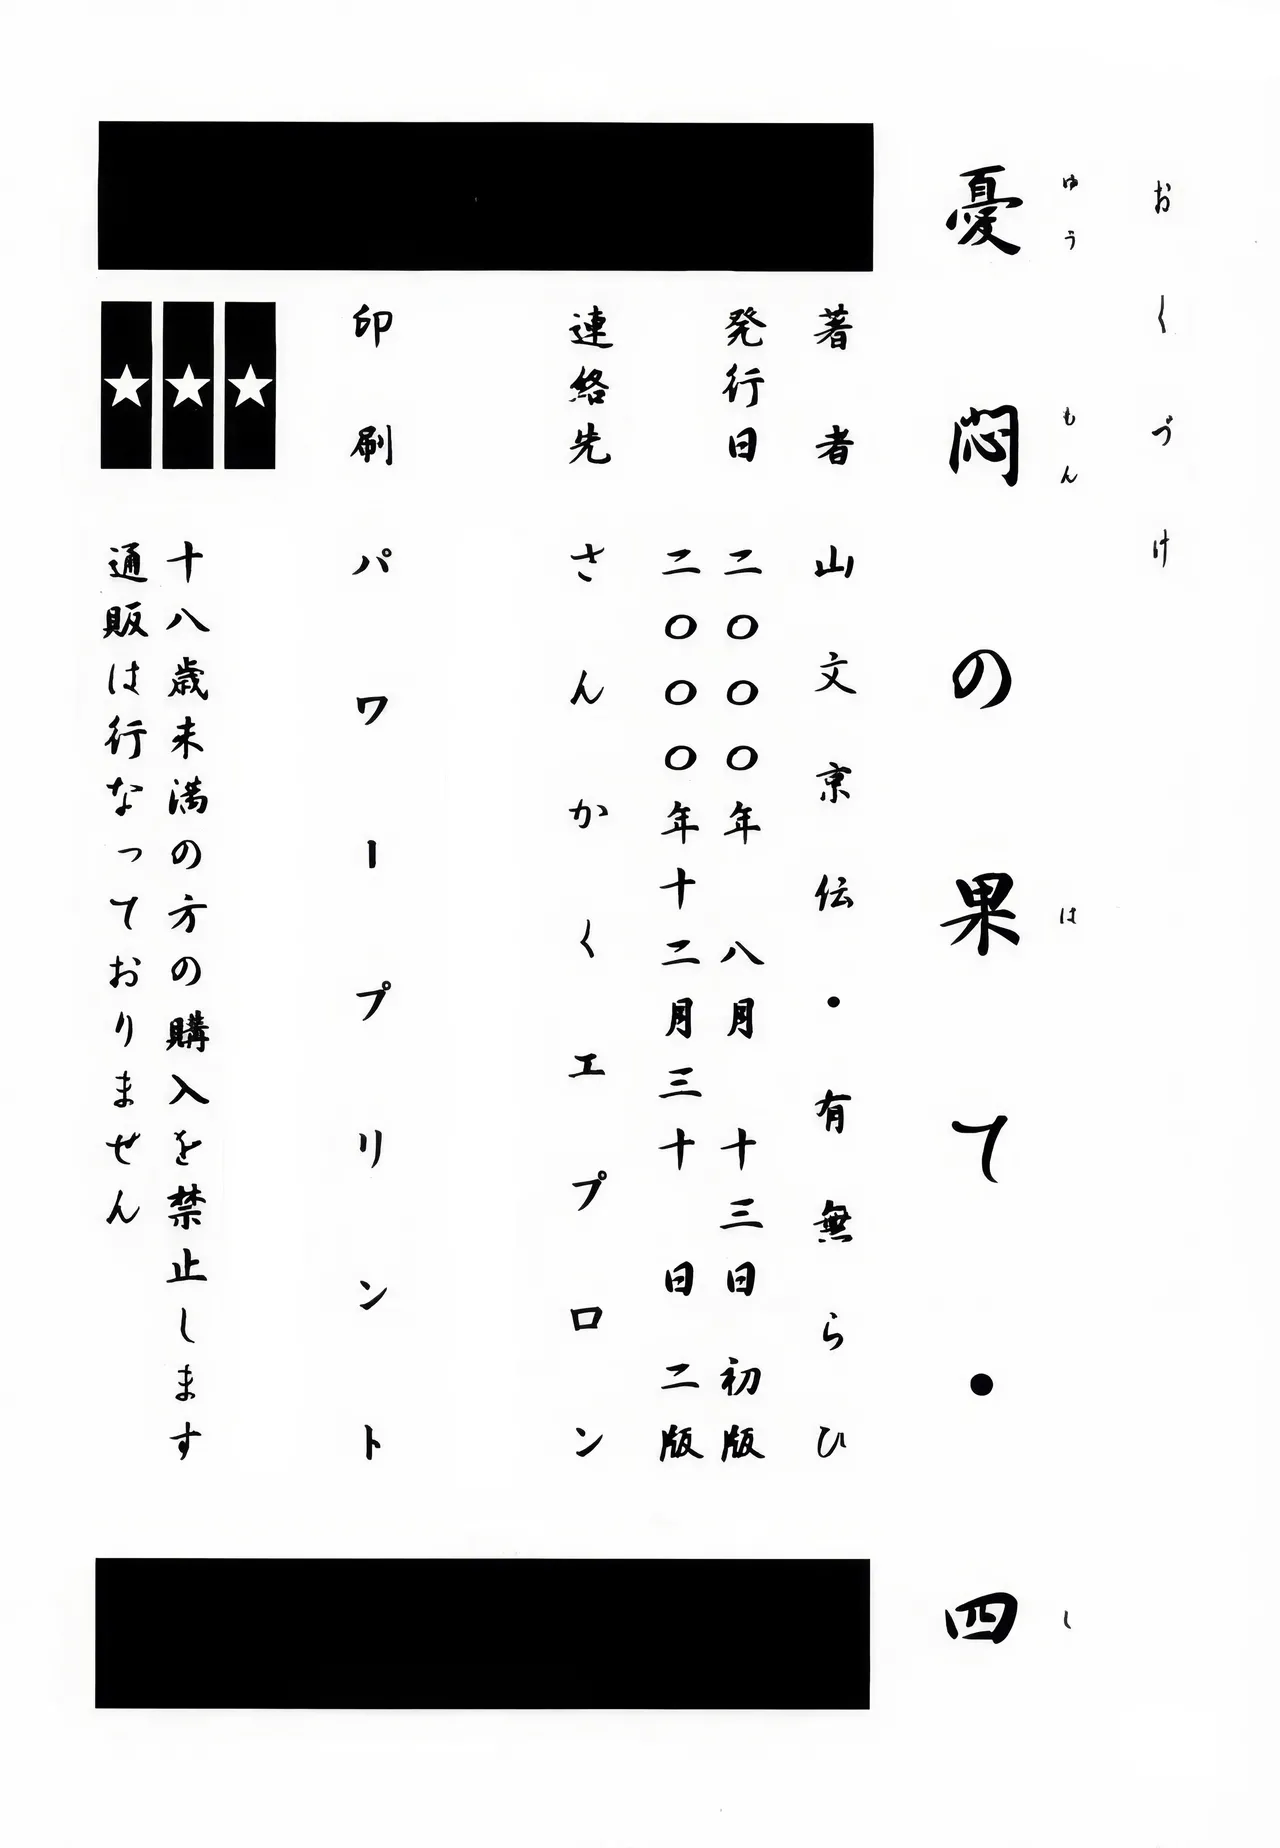 おくづけ
憂悶の果て・四
ゆうもんはし
著者 山文京伝・有無らひ
発行日 二〇〇〇年 八月 十三日 初版
二〇〇〇年十二月三十 日 二版
連絡先 さんかくエプロン
印刷 パワープリント
★★★
十八歳未満の方の購入を禁止します
通販は行なっておりません